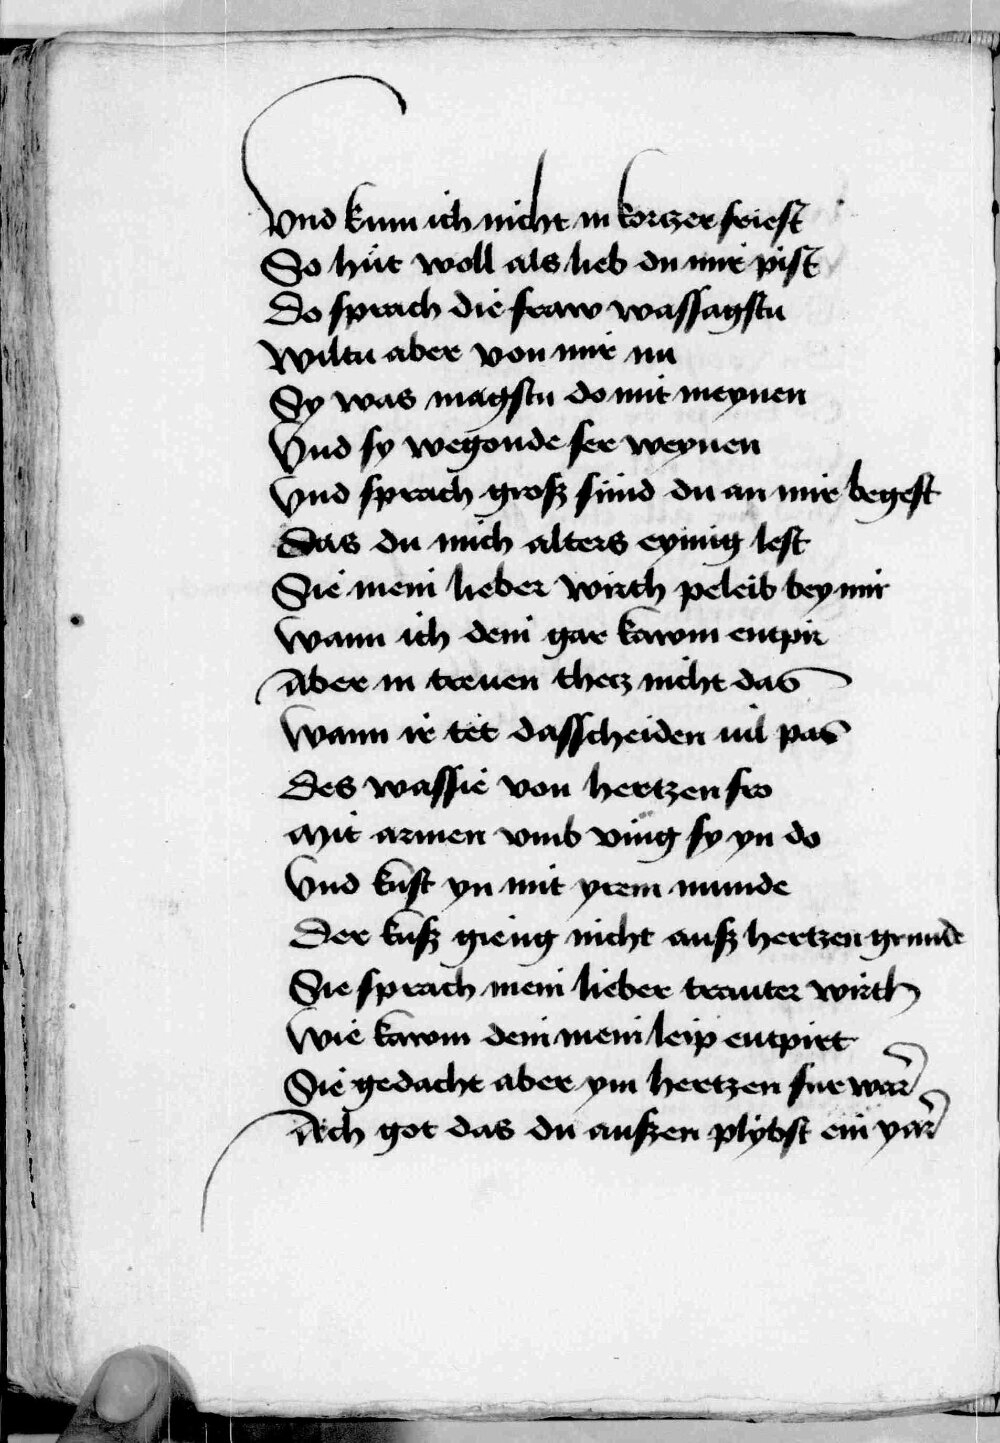 Vnd kum ich nicht in kortzer friest
So hüt woll als lieb du mir pist
Do sprach die fraw wassagstu
Wiltu aber von mir nu
Sy was magstu do mit meynen
Vnd sy wegonde ser weynen
Vnd sprach grosz sünd du an mir begest
Das du mich alters eynnig lest
Sie mein lieber wirth peleib bey mir
Wann ich dein gar kawm entpir
Aber in treuen thetz nicht das
Wann ir tet dasscheiden vil pas
Des wassie von hertzen fro
Mit armen vmb ving sy yn do
Vnd kust yn mit yrem munde
Der kusz gieng nicht ausz hertzen grunde
Sie sprach mein lieber trauter wirth
Wie kawm dein mein leip entpirt
Sie gedacht aber ym hertzen fur war
Ach got das du auszen plybst ein yar